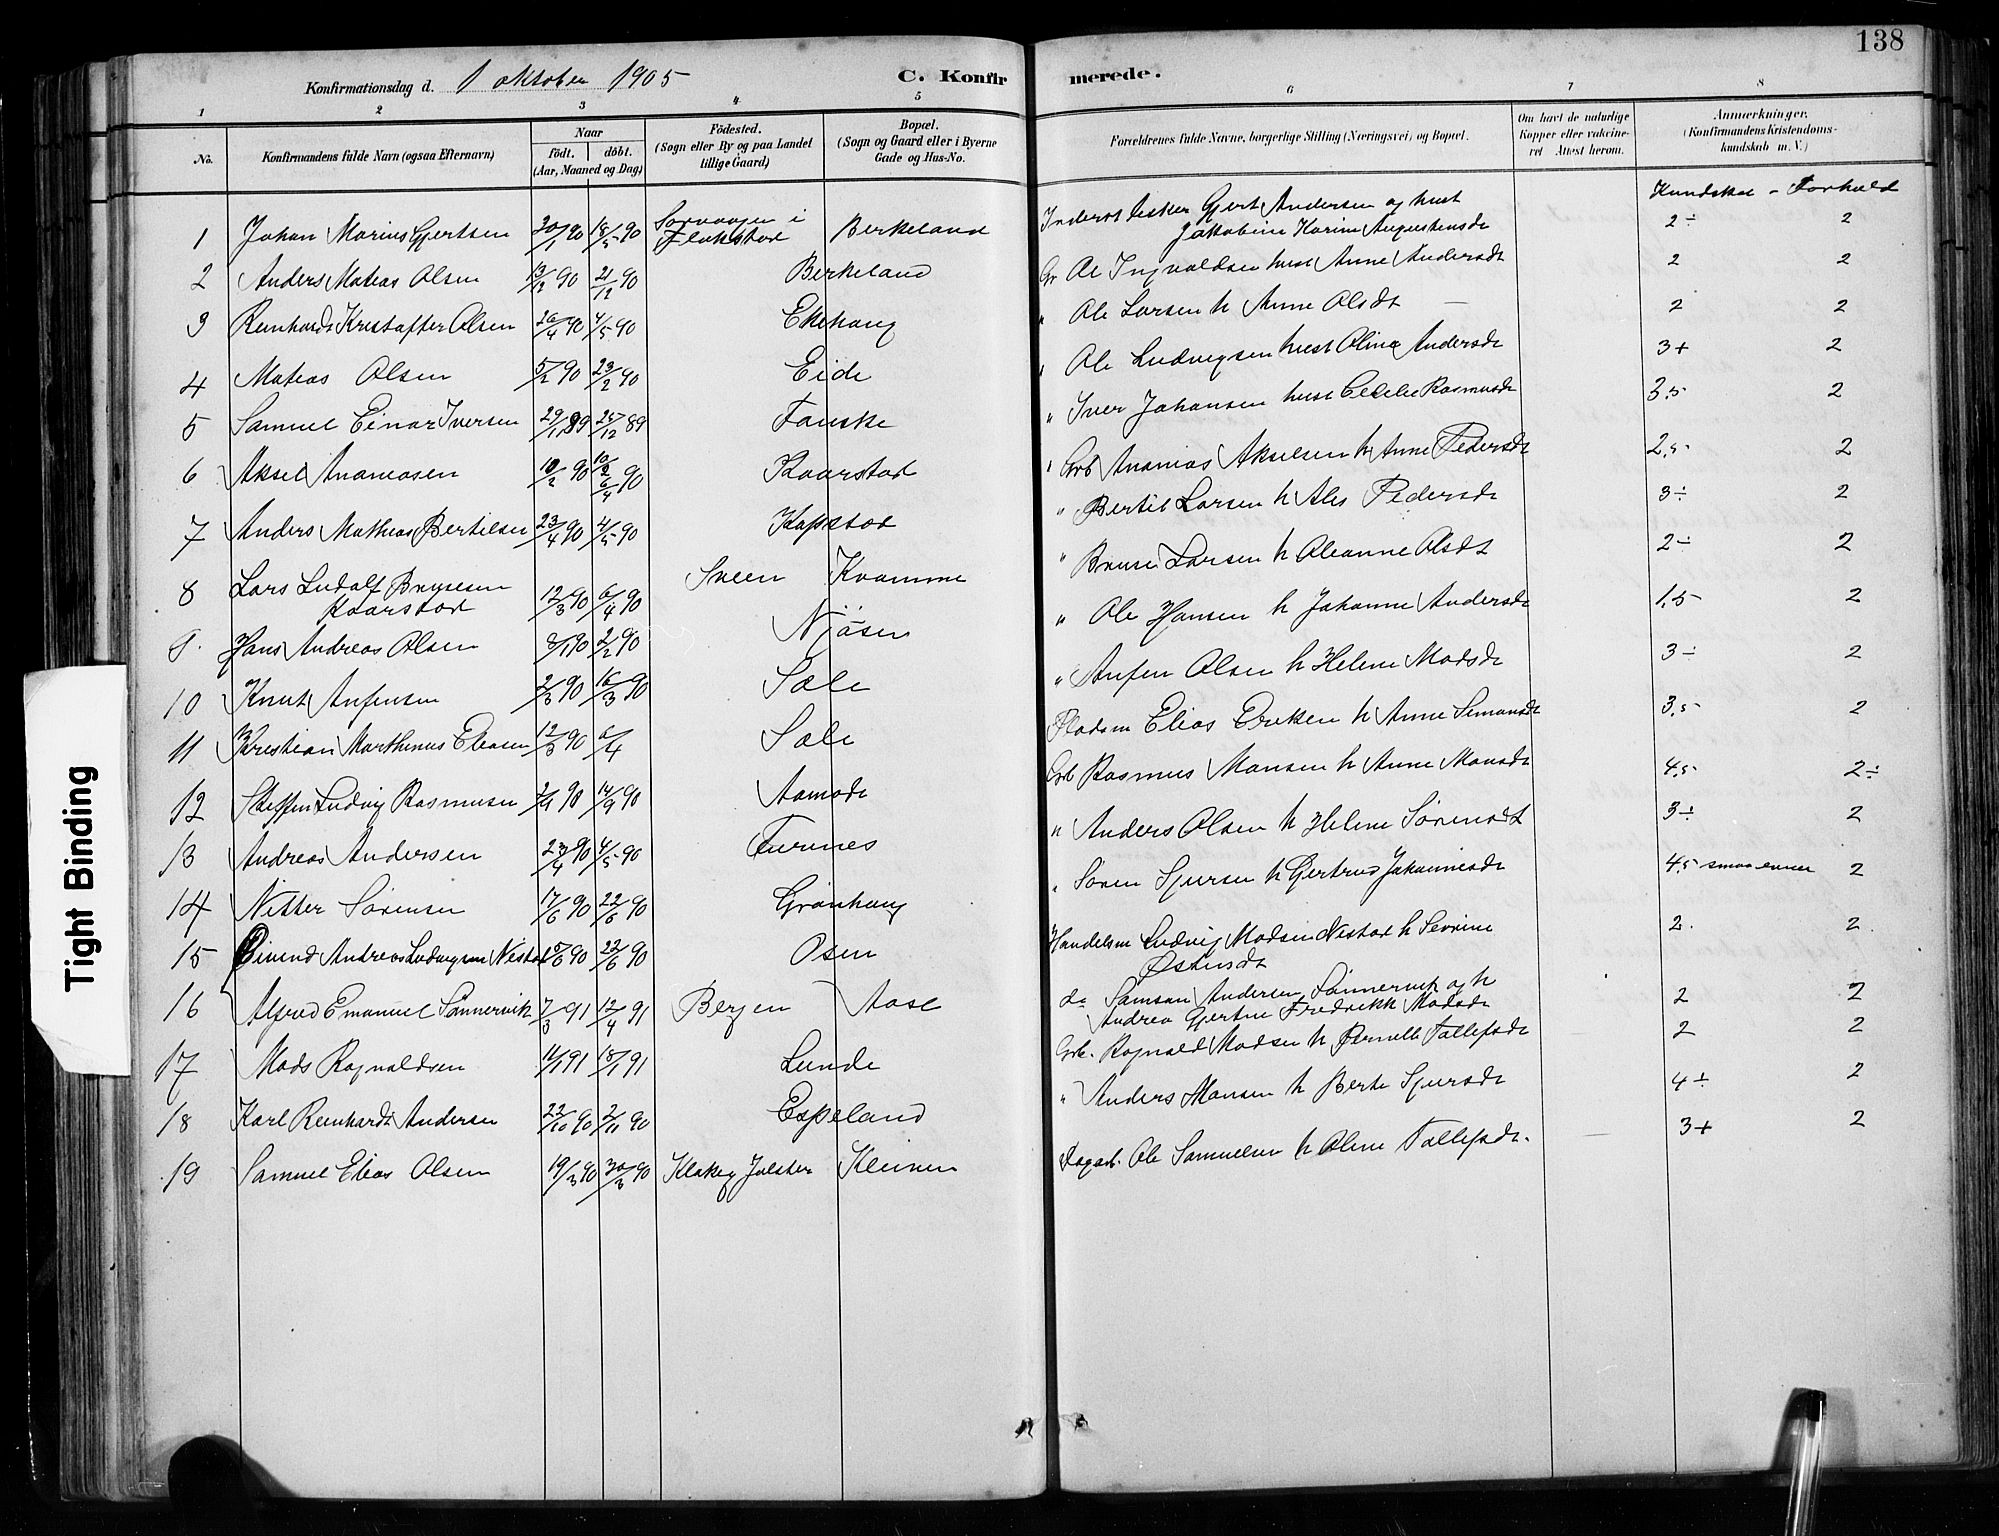 138
Konfirmationsdag d. 1 oktober 1905 C. Konfirmerede.
1 2 3 4 5 6 7 8
No. Konfirmandens fulde Navn (ogsaa Efternavn) Naar født. døbt. (Aar, Maaned og Dag) Födested. (Sogn eller By og paa Landet tillige Gaard) Bopæl. (Sogn og Gaard eller i Byerne Gade og Hus-No. Forældrenes fulde Navne, borgerlige Stilling (Næringsvei) og Bopæl. Om havt de naturlige Kopper eller vaccineret Attest herom. Anmærkninger, (Konfirmandens Kristendomskundskab m. V.)
Kundskab - Forhold
1 Johan Marius Gjertsen 20/1 90 18/5 90 Sørvaagen i Flakstad Berkeland Gjert Andersen og hust Jakobine Karine Augustinsdt 2÷ 2
2 Anders Matias Olsen 13/2 90 21/12 90 Berkeland Gr Ole Ingvaldsen hust Anne Andersdt 2 2
3 Reinhardt Kristoffer Olsen 26/4 90 4/5 90 Ekehaug " Ole Larsen h Anne Olsdt 2 2
4 Matias Olsen 5/2 90 23/2 90 Eide " Ole Ludvigsen hust Oline Andersdt 3+ 2
5 Samuel Einar Iversen 29/11 89 26/12 89 Fauske " Iver Johansen hust Cecilie Rasmusdt 3,5 2
6 Aksel Ananiasen 10/2 90 10/2 6/4 90 Kaarstad " Grb Ananias Akselsen h Anne Pedersdt 2,5 2
7 Anders Mathias Bertilsen 23/4 90 4/5 90 Kapstad " Bertil Larsen h Ales Pedersdt 3÷ 2
8 Lars Ludolf Brusen Kaarstad 12/3 90 6/4 90 Sveen Kvamme " Bruse Larsen h Oleanne Olsdt 2÷ 2
9. Hans Andreas Olsen 8/1 90 2/2 90 Njøsen " Ole Hansen h Johanne Andersdt 1,5 2
10 Knut Anfensen 2/3 90 16/3 90 Sæle " Anfen Olsen h Helene Madsdt 3÷ 2
11 Kristian Marthinus Eliasen 12/3 90 6/4 Sæle Pladsm Elias Eriksen h Anne Simonsdt 3,5 2
12 Steffen Ludvig Rasmusen 2/9 90 14/9 90 Aamodt Grb Rasmus Monsen h Anne Monsdt 4,5 2÷
13 Andreas Andersen 23/4 90 4/5 90 Furenes " Anders Olsen h Helene Sørensdt 3÷ 2
14 Nitter Sørensen 17/6 90 22/6 90 Grønhaug " Søren Sjursen h Gertrud Johannesdt 4,5 smaa evner 2
15 Eivind Andreas Ludvigsen Nestad 15/6 90 22/6 90 Osen Handelsm Ludvig Madsen Nestad h Severine Østensdt 2. 2.
16 Alfred Emanuel Sønnervik 7/3 91 12/4 91 Bergen Aase do Samson Andersen Sønnervik og h Andrea Gjertine Fredrikk Madsdt 2 2
17 Mads Ragnvaldsen 11/1 91 18/1 91 Lunde Grb. Ragnvald Madsen h Pernille Tollefsdt 2 2
18 Karl Reinhardt Andersen 22/10 90 2/11 90 Espeland " Anders Monsen h Berte Sjursdt 4÷ 2
19 Samuel Elias Olsen 19/3 90 30/3 90 Klakeg Jølster Kleiven Dagarb. Ole Samuelsen h Oline Tollefsdt. 3+ 2
Tight Binding